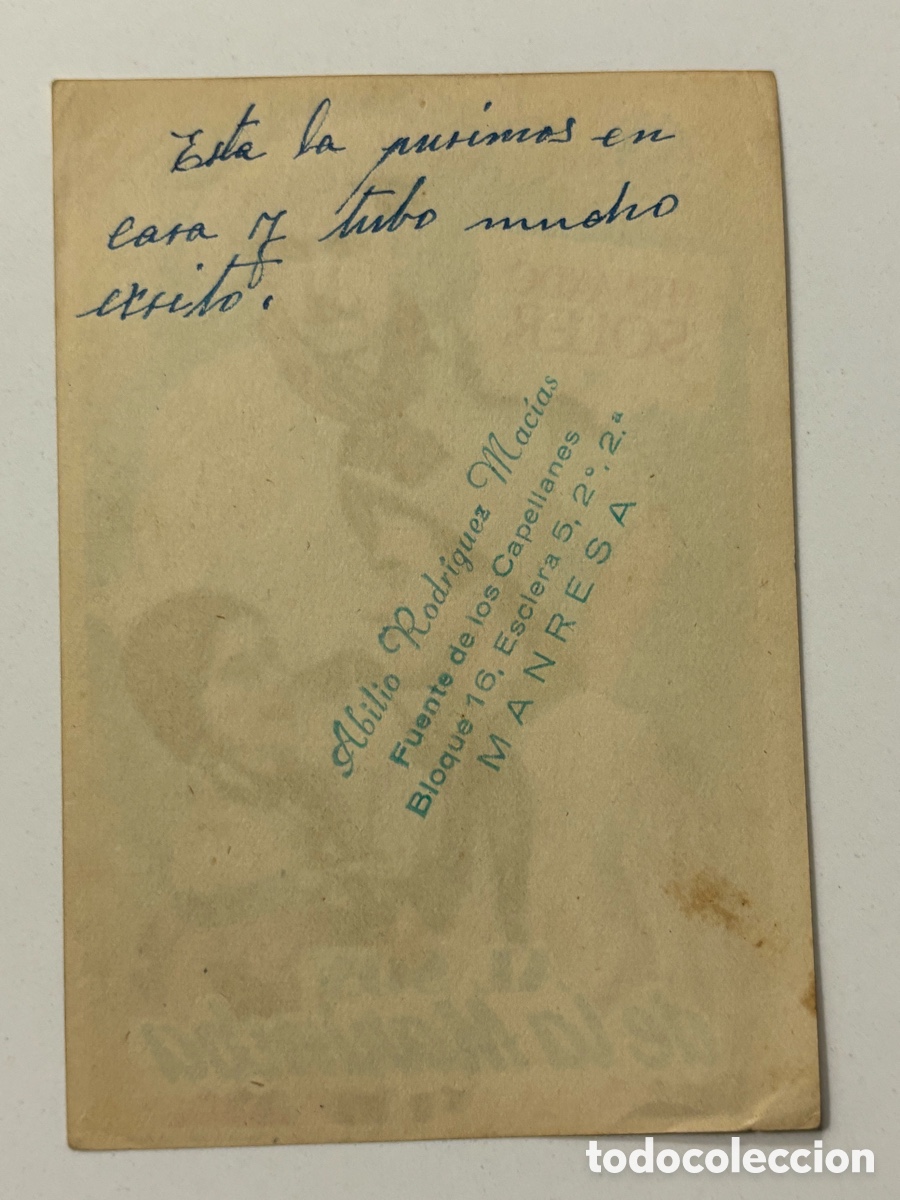 Esta la pusimos en
casa y tubo mucho
exsito.
Abilio Rodríguez Macías
Fuente de los Capellanes
Bloque 16, Esclera 5, 2º. 2.ª
MANRESA
SOLER
AL SON
de la Marimba
todocoleccion